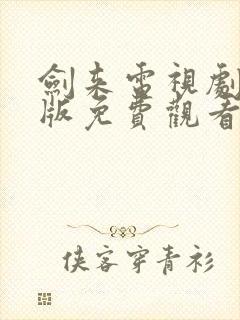 劍来電視劇
版免費觀看
侠客穿青衫